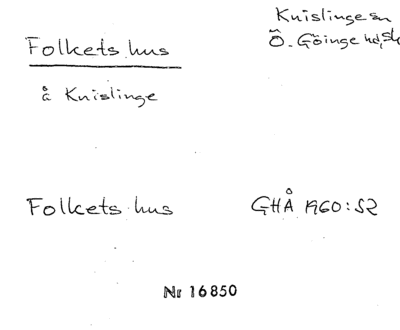 Knislinge sn
Folkets hus
Ö. Göinge hd, Sk
å Knislinge
Folkets hus GHÅ 1960:52
Nr 16850